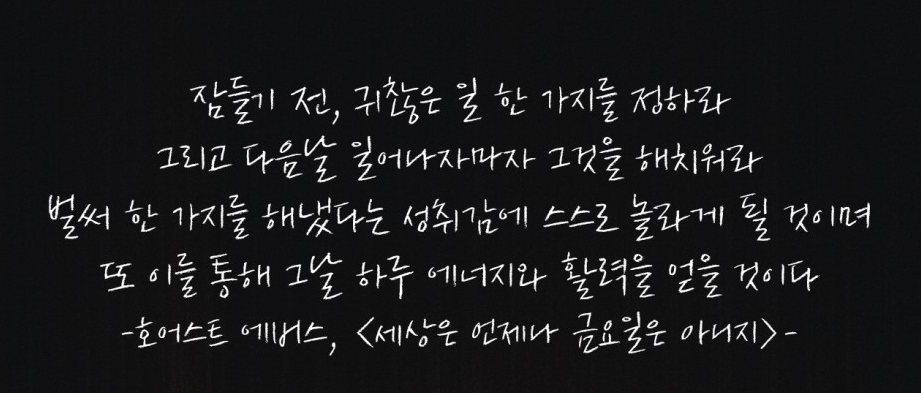 잠들기 전, 귀찮은 일 한 가지를 정하라
그리고 다음날 일어나자마자 그것을 해치워라
벌써 한 가지를 해냈다는 성취감에 스스로 놀라게 될 것이며
또 이를 통해 그날 하루 에너지와 활력을 얻을 것이다
-호어스트 에버스, <세상은 언제나 금요일은 아니지>-